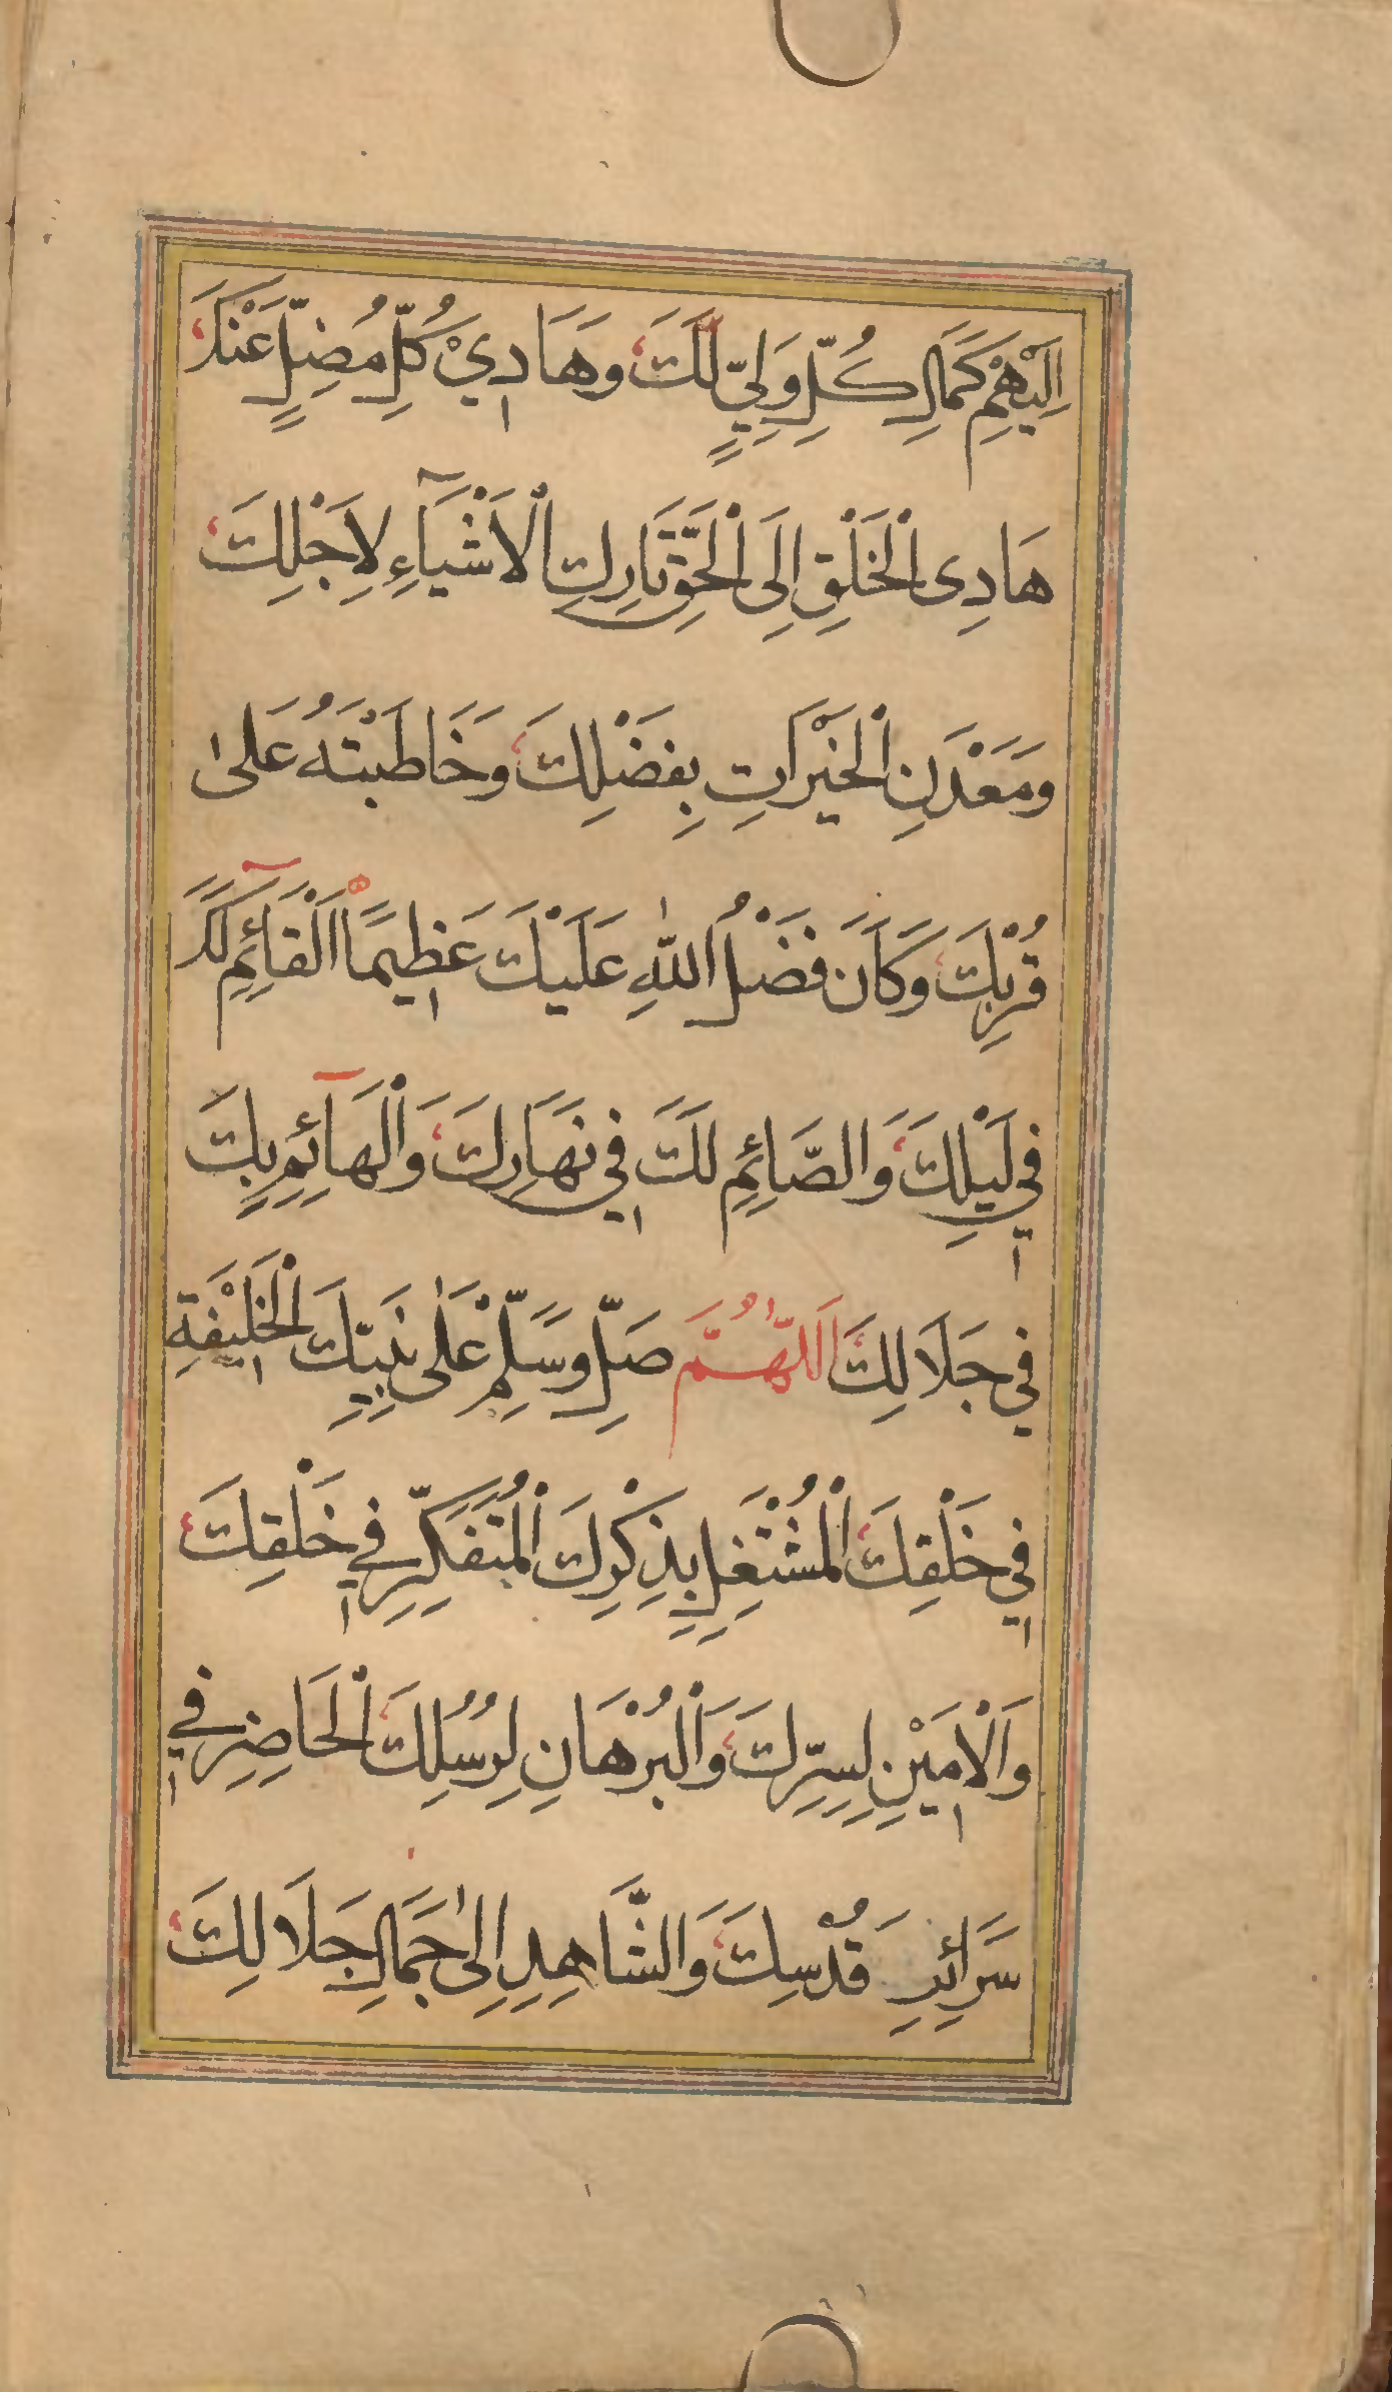 اِلَيْهِمْ كَمَالِ كُلِّ وَلِيٍّ لَكَ وَهَادِيْ كُلِّ مُضِلٍّ عَنْكَ
هَادِى الْخَلْقِ اِلَى الْحَقِّ تَارِكِ الْاَشْيَآءِ لِاَجْلِكَ
وَمَعْدَنِ الْخَيْرَاتِ بِفَضْلِكَ وَخَاطَبْتَهُ عَلٰى
قُرْبِكَ وَكَانَ فَضْلُ اللّٰهِ عَلَيْكَ عَظِيمًا اَلْقَآئِمِ لَكَ
فِي لَيْلِكَ وَالصَّائِمِ لَكَ فِي نَهَارِكَ وَالْهَآئِمِ بِكَ
فِي جَلَالِكَ اَللّٰهُمَّ صَلِّ وَسَلِّمْ عَلٰى نَبِيِّكَ الْخَلِيْفَةِ
فِي خَلْقِكَ الْمُشْتَغِلِ بِذِكْرِكَ الْمُتَفَكِّرِ فِي خَلْقِكَ
وَالْاَمِيْنِ لِسِرِّكَ وَالْبُرْهَانِ لِرُسُلِكَ الْحَاضِرِ فِي
سَرَائِرِ قُدْسِكَ وَالشَّاهِدِ اِلٰى جَمَالِ جَلَالِكَ